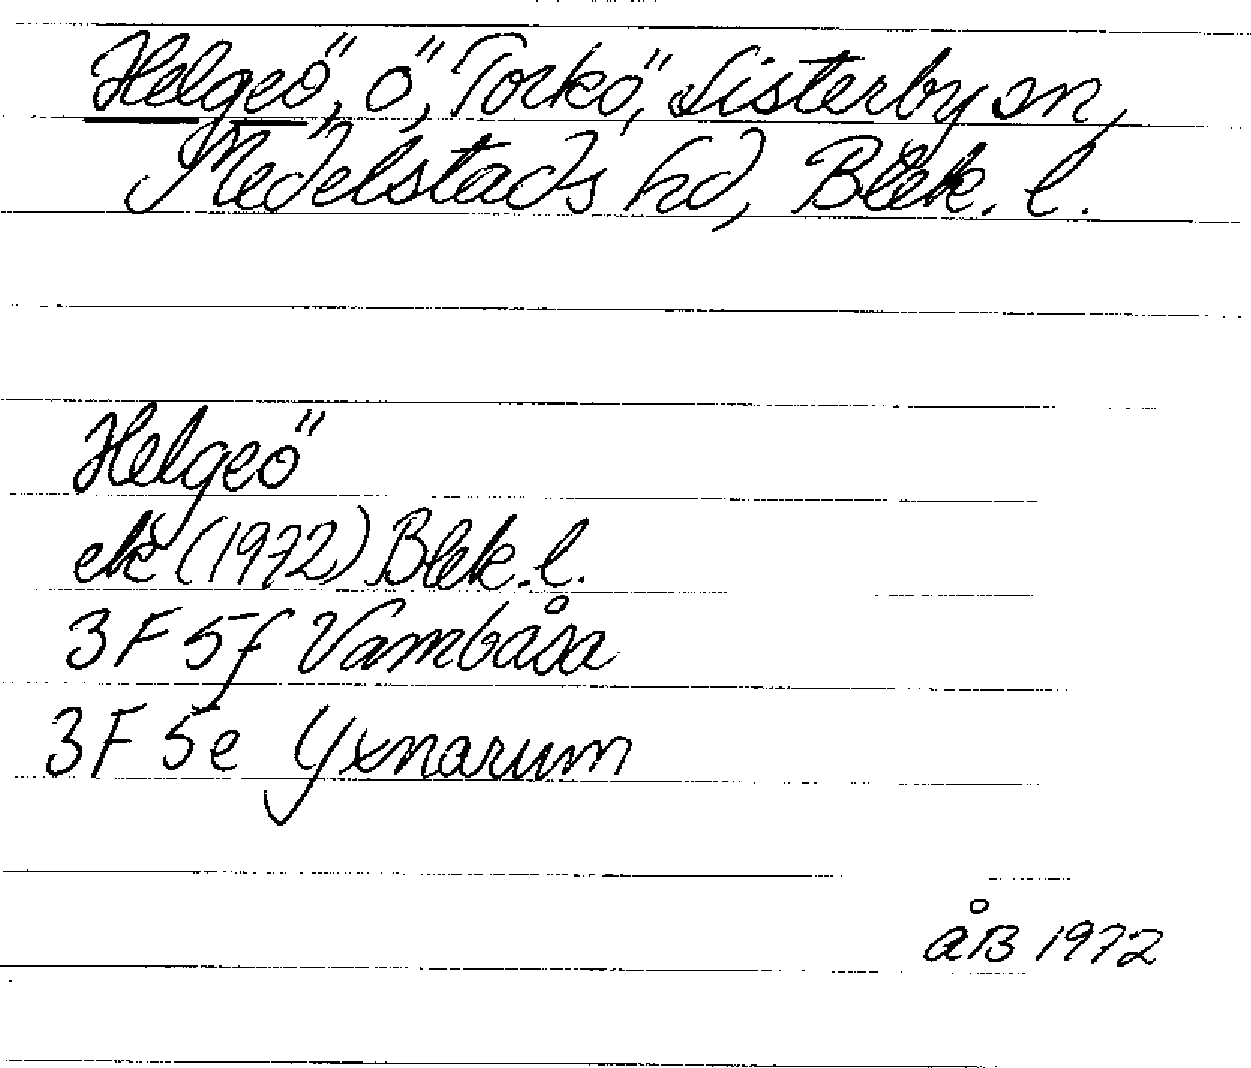 Helgeö, ö, Torkö, Listerby sn,
Medelstads hd, Blek. l.
Helgeö
ek (1972) Blek. l.
3 F 5f Vambåsa
3 F 5e Yxnarum
åB 1972